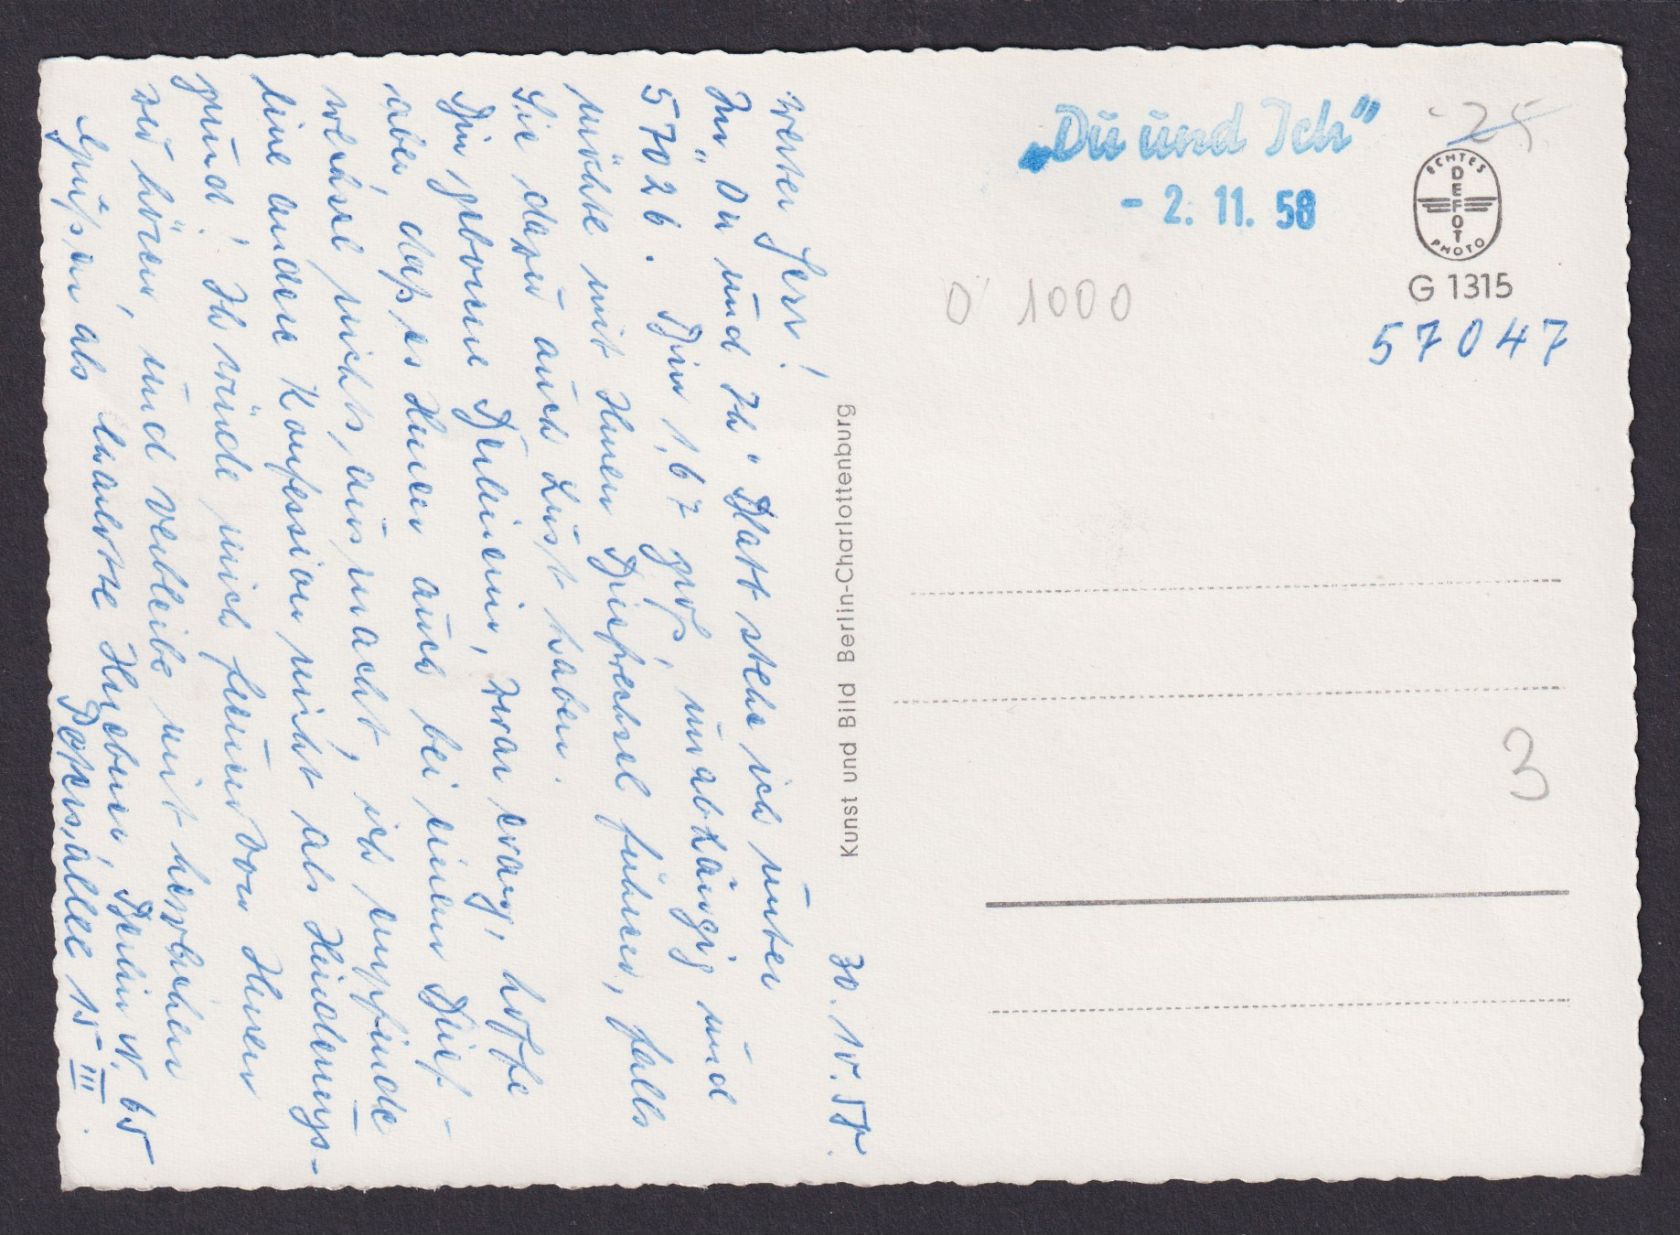 30. 10. 58.
Werter Herr!
Im "Du und Ich" Blatt stehe ich unter
57026. Bin 1,67 groß, unabhängig und
möchte mit Ihnen Briefwechsel führen, falls
Sie dazu auch Lust haben.
Bin geborene Berlinerin, zwar evang., hoffe
aber, daß es Ihnen auch bei einem Brief-
wechsel nichts ausmacht, ich empfinde
eine andere Konfession nicht als Hinderungs-
grund! Ich würde mich freuen von Ihnen
zu hören, und verbleibe mit herzlichen
Grüßen als Huebner, Berlin N. 65
15 III.
Kunst und Bild Berlin-Charlottenburg
„Du und Ich"
- 2. 11. 58
25
ECHTES
DEFOT
PHOTO
G 1315
57047
0 1000
3